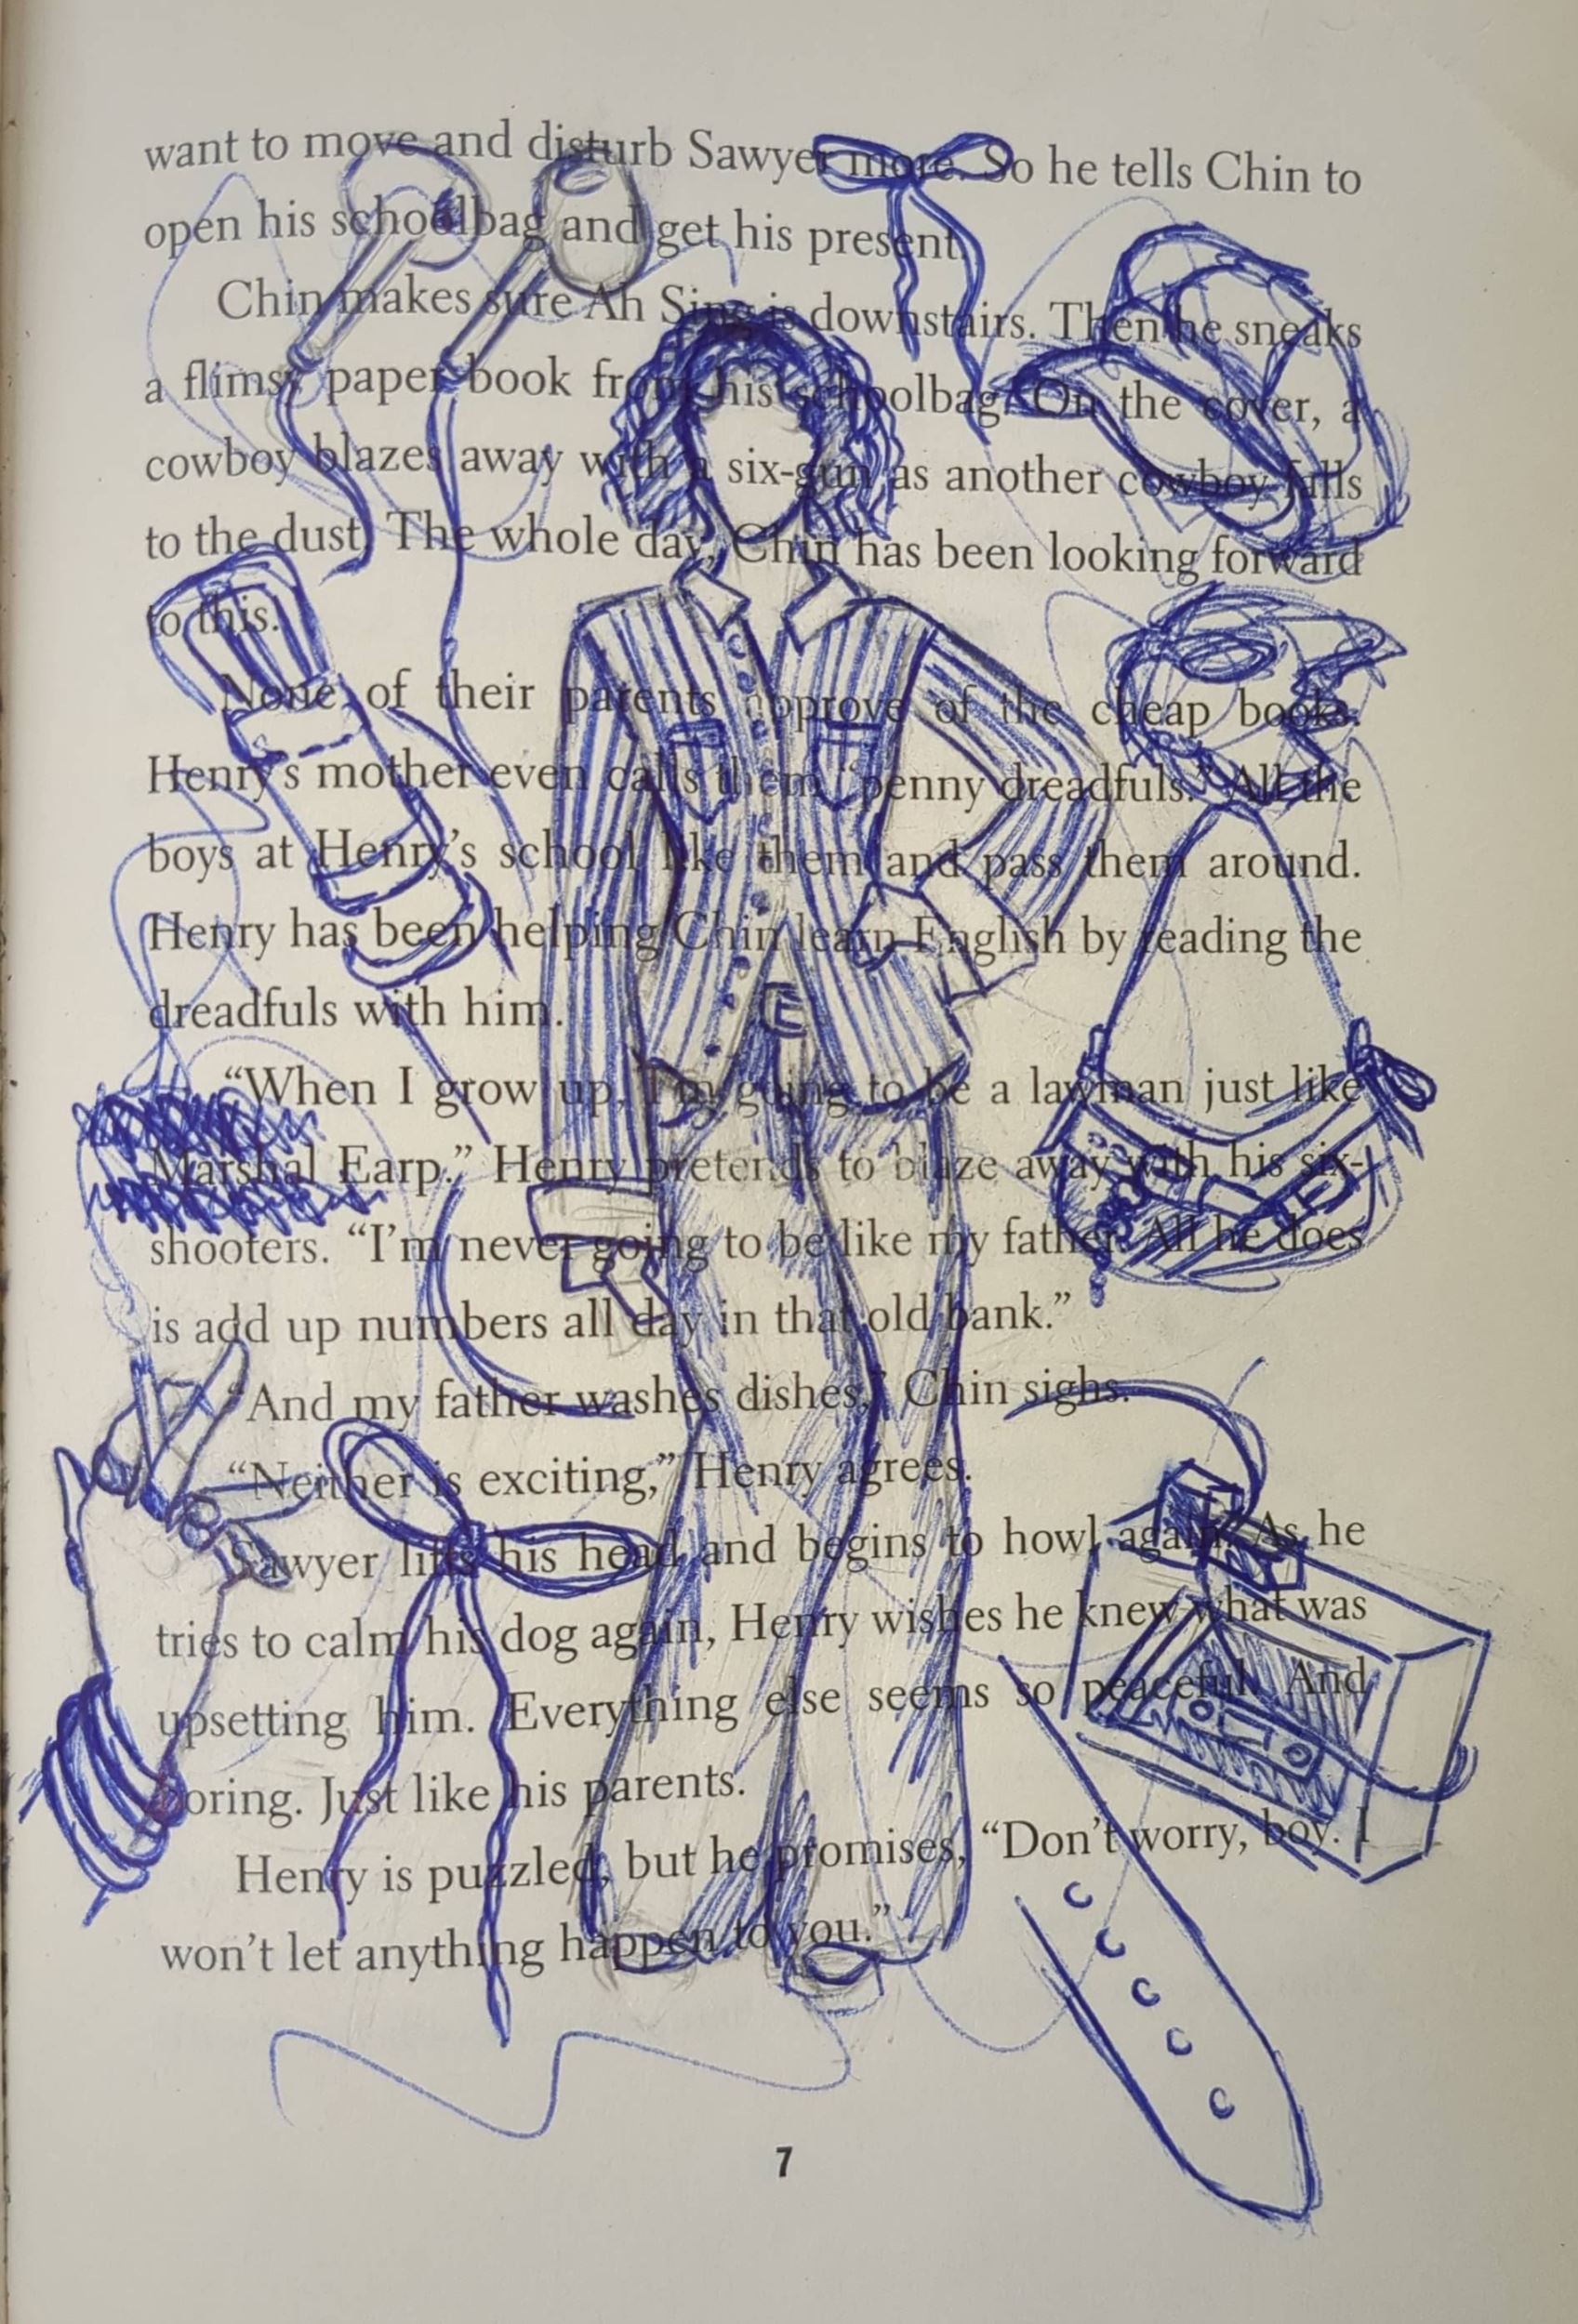 want to move and disturb Sawyer more. So he tells Chin to
open his schoolbag and get his present.
Chin makes sure Ah Sing is downstairs. Then he sneaks
a flimsy paper book from his schoolbag. On the cover, a
cowboy blazes away with a six-gun as another cowboy falls
to the dust. The whole day, Chin has been looking forward
to this.
None of their parents approve of the cheap books.
Henry's mother even calls them "penny dreadfuls." All the
boys at Henry's school like them and pass them around.
Henry has been helping Chin learn English by reading the
dreadfuls with him.
"When I grow up, I'm going to be a lawman just like
Marshal Earp." Henry pretends to blaze away with his six-
shooters. "I'm never going to be like my father. All he does
is add up numbers all day in that old bank."
"And my father washes dishes," Chin sighs.
"Neither is exciting," Henry agrees.
Sawyer lifts his head and begins to howl again. As he
tries to calm his dog again, Henry wishes he knew what was
upsetting him. Everything else seems so peaceful. And
boring. Just like his parents.
Henry is puzzled, but he promises, "Don't worry, boy. I
won't let anything happen to you."
7